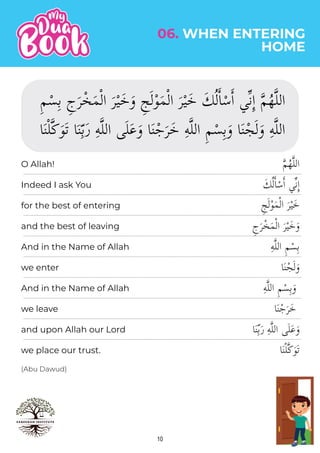 My
Dua
Book
06. WHEN ENTERING
HOME
اللَّهُمَّ إِنِّي أَسْأَلُكَ خَيْرَ الْمَوْلَجِ وَخَيْرَ الْمَخْرَجِ بِسْمِ
اللَّهِ وَلَجْنَا وَبِسْمِ اللَّهِ خَرَجْنَا وَعَلَى اللَّهِ رَبِّنَا تَوَكَّلْنَا
O Allah! اللَّهُمَّ
Indeed I ask You إِنِّي أَسْأَلُكَ
for the best of entering خَيْرَ الْمَوْلَجِ
and the best of leaving وَخَيْرَ الْمَخْرَجِ
And in the Name of Allah بِسْمِ اللَّهِ
we enter وَلَجْنَا
And in the Name of Allah وَبِسْمِ اللَّهِ
we leave خَرَجْنَا
and upon Allah our Lord وَعَلَى اللَّهِ رَبِّنَا
we place our trust. تَوَكَّلْنَا
(Abu Dawud)
10